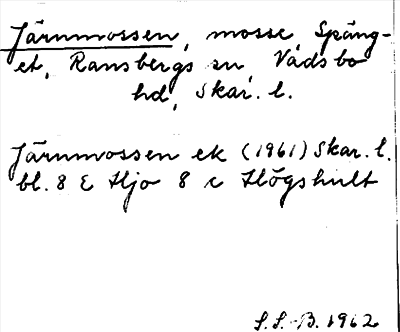 Järnmossen, mosse Späng-
et, Ransbergs sn Vadsbo
hd, Skar. l.
Järnmossen ek (1961) Skar. l.
bl. 8 E Hjo 8 c Högshult
S.S.-B. 1962